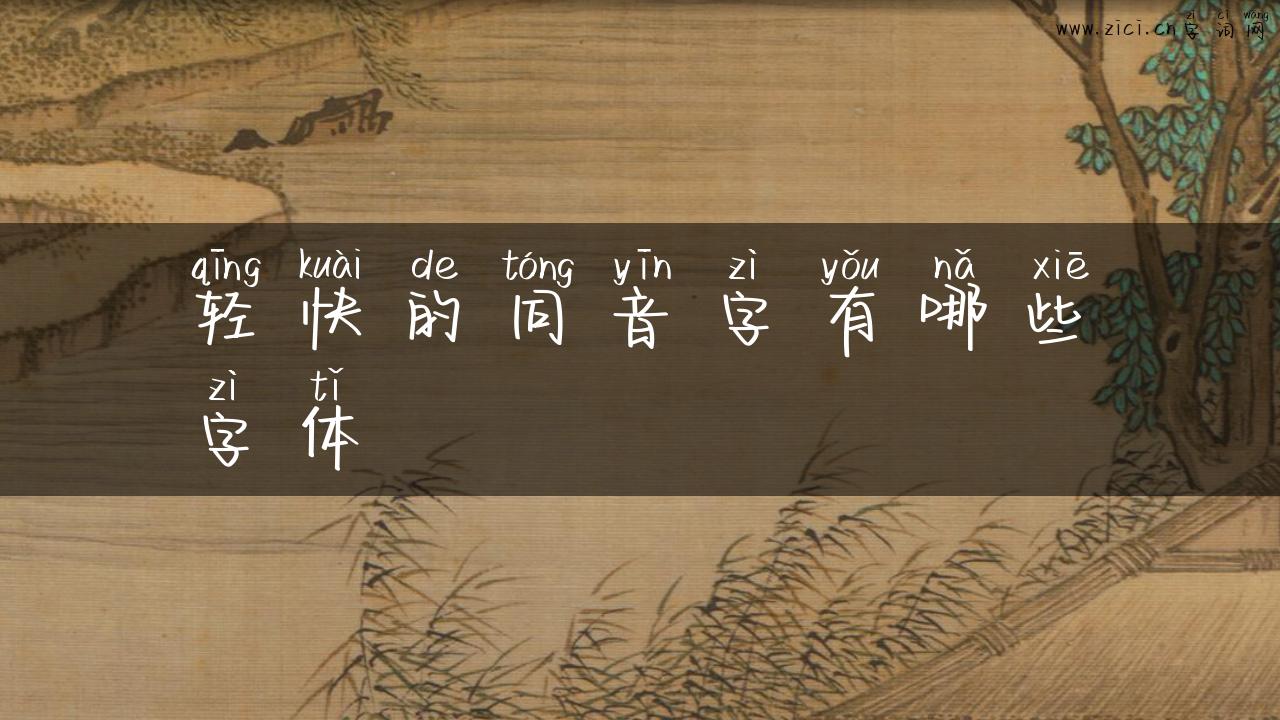 zì cí wǎng
www.zici.cn字词网
qīng kuài de tóng yīn zì yǒu nǎ xiē
轻快的同音字有哪些
zì tǐ
字体